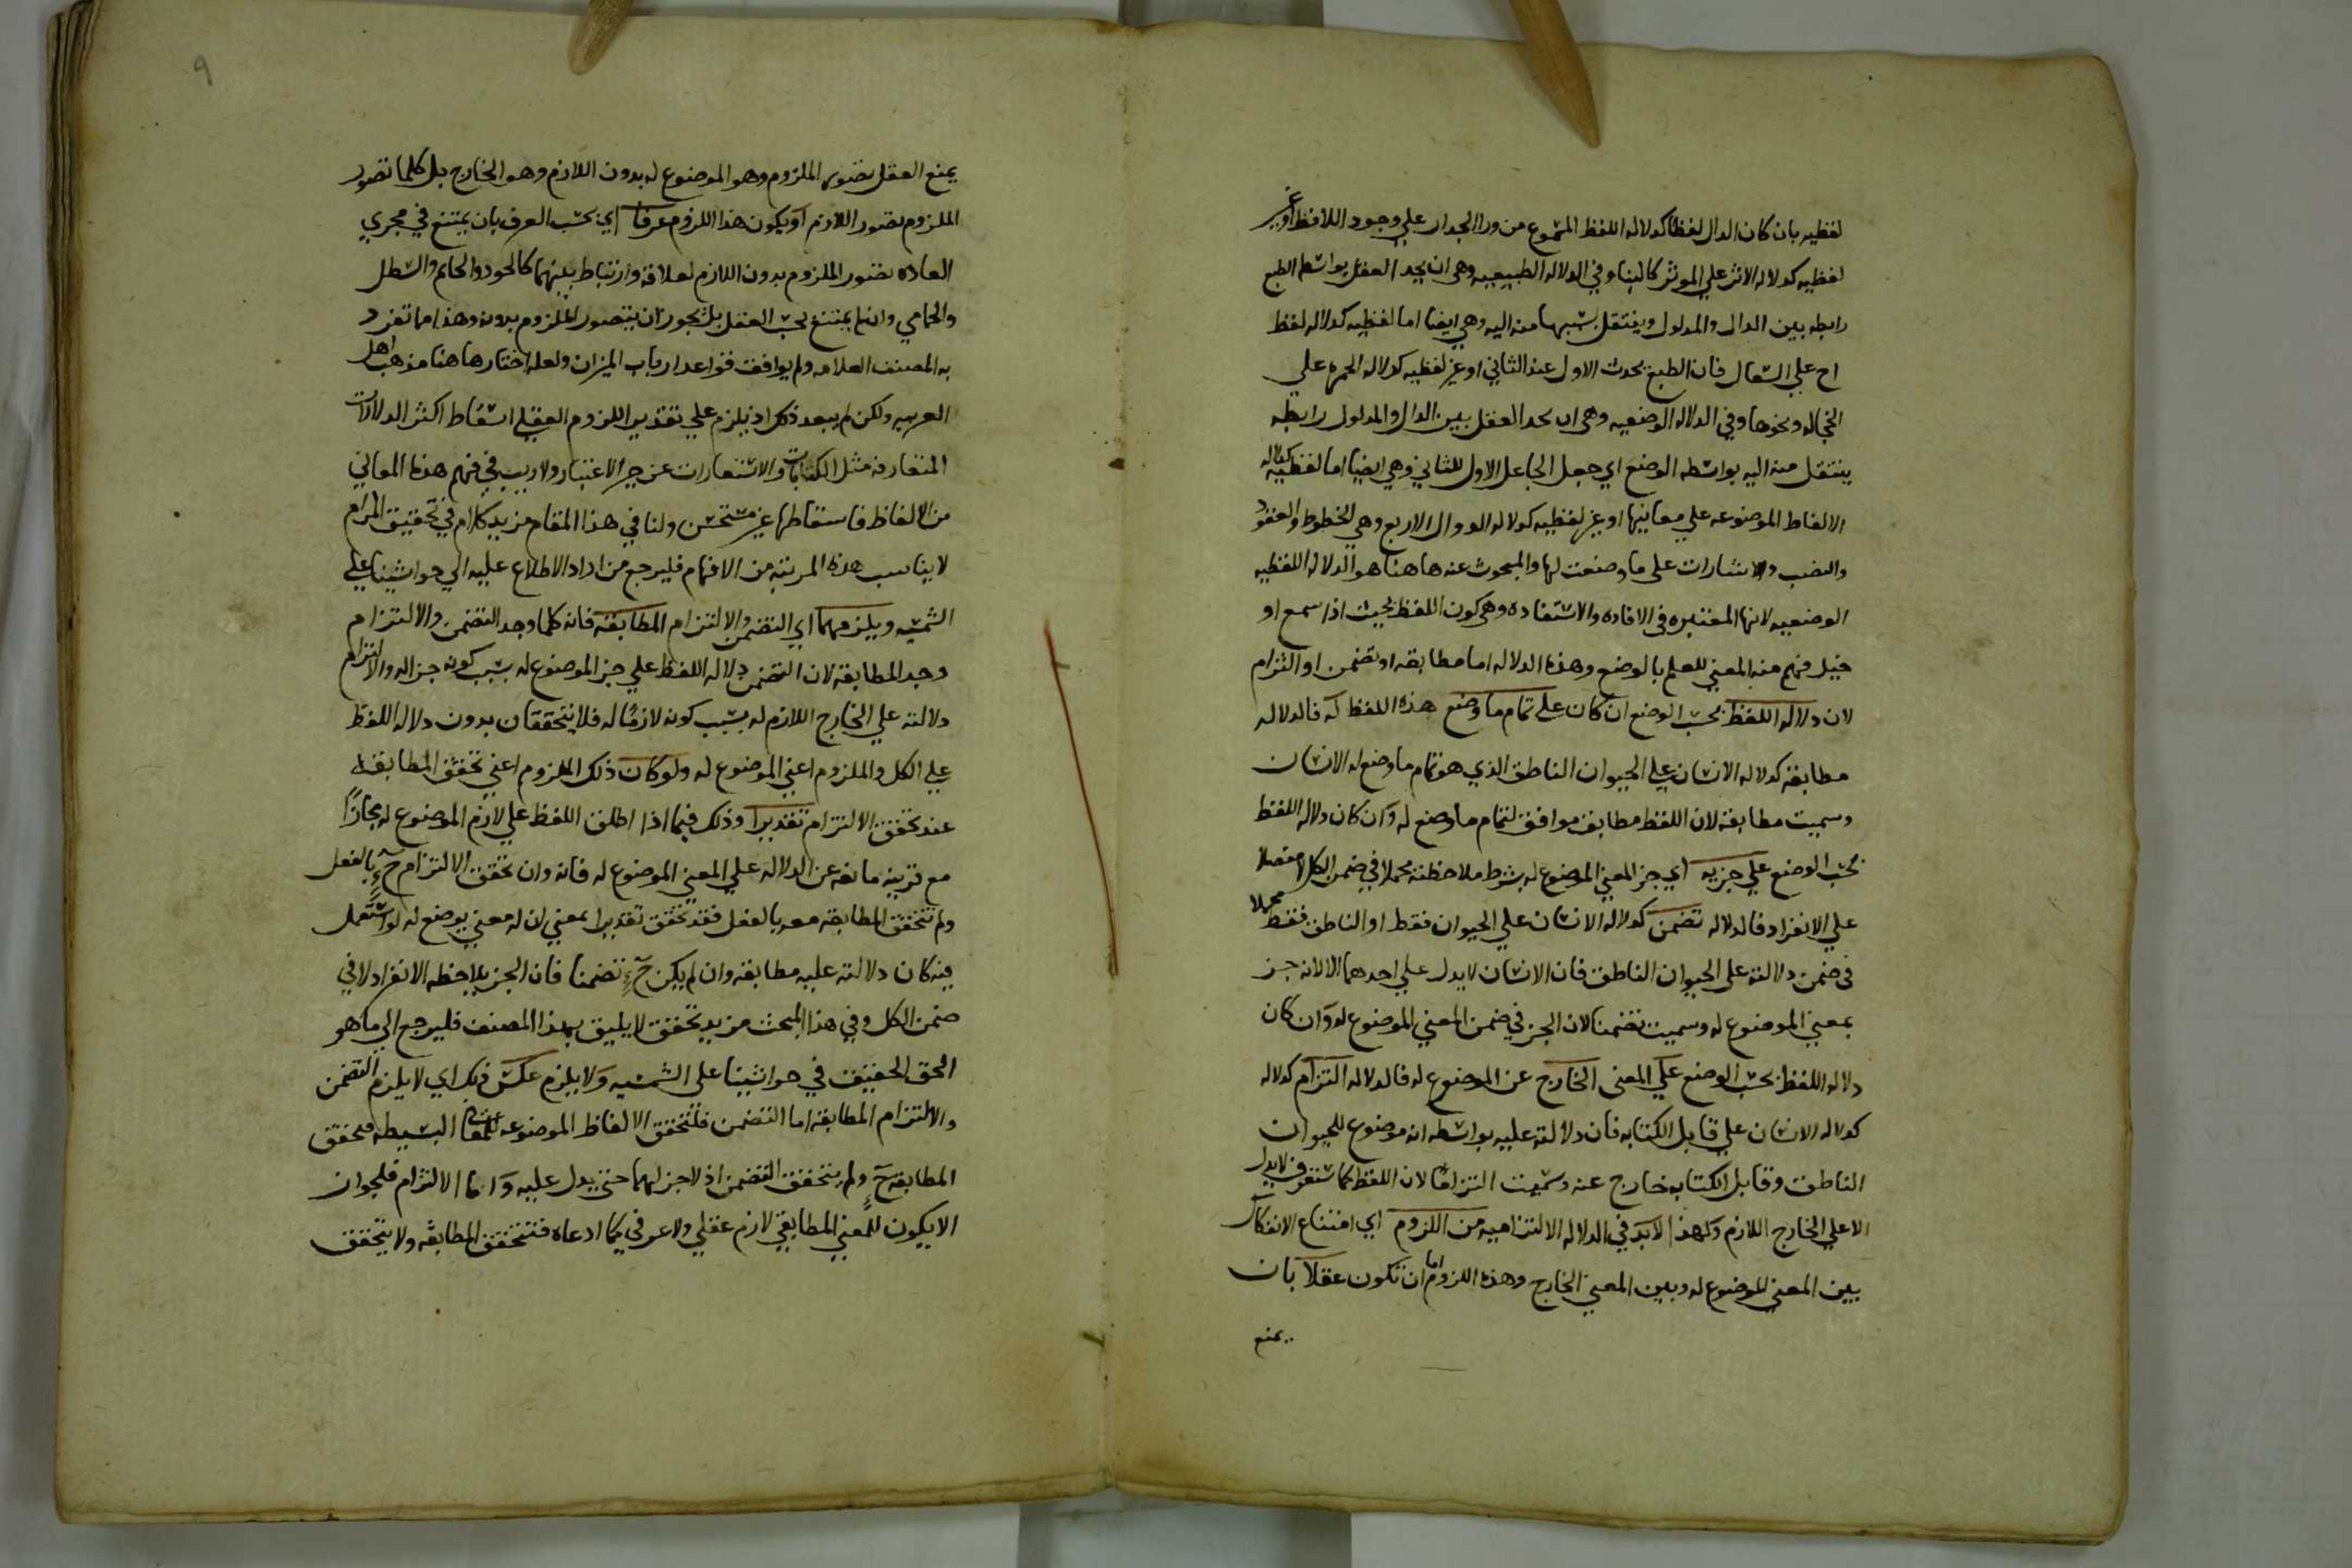 لفظيه بان كان الدال لفظا كدلاله اللفظ المسموع من ورا الجدار علي وجود اللافظ او غير
لفظيه كدلاله الاثر علي الموثر كالبنا وفي الدلاله الطبيعيه وهي ان يجد العقل بواسطه الطبع
رابطه بين الدال والمدلول وينتقل بسببها منه اليه وهي ايضا اما لفظيه كدلاله لفظ
اح علي السعال فان الطبع يحدث الاول عند الثاني او غير لفظيه كدلاله الحمره علي
الخجاله ونحوها وفي الدلاله الوضعيه وهي ان يجد العقل بين الدال والمدلول رابطه
ينتقل منه اليه بواسطه الوضع اي جعل الجاعل الاول للثاني وهي ايضا اما لفظيه كدلاله
الالفاظ الموضوعه علي معانيها او غير لفظيه كدلاله الدوال الاربع وهي الخطوط والعقود
والنصب والاشارات على ما وضعت لها والمبحوث عنه هاهنا هو الدلاله اللفظيه
الوضعيه لانها المعتبره في الافاده والاستفاده وهي كون اللفظ بحيث اذا سمع او
خيل فهم منه المعني للعلم بالوضع وهذه الدلاله اما مطابقه او تضمن او التزام
لان دلاله اللفظ بحسب الوضع ان كان علي تمام ما وضع هذه اللفظ له فالدلاله
مطابقه كدلاله الانسان علي الحيوان الناطق الذي هو تمام ما وضع له الانسان
وسميت مطابقه لان اللفظ مطابق موافق لتمام ما وضع له وان كان دلاله اللفظ
بحسب الوضع علي جزيه اي جز المعني الموضوع له بشرط ملاحظته مجملا في ضمن الكل لا مفصلا
علي الانفراد فالدلاله تضمن كدلاله الانسان علي الحيوان فقط او الناطق فقط مجملا
في ضمن دلالته على الحيوان الناطق فان الانسان لا يدل علي احدهما الا لانه جز
بمعني الموضوع له وسميت تضمنا لان الجز في ضمن المعني الموضوع له وان كان
دلاله اللفظ بحسب الوضع علي المعنى الخارج عن الموضوع له فالدلاله التزام كدلاله
كدلاله الانسان علي قابل الكتابه فان دلالته عليه بواسطه انه موضوع للحيوان
الناطق وقابل الكتابه خارج عنه وسميت التزاما لان اللفظ كما ستعرف لا يدل
الا علي الخارج اللازم ولهذا لا بد في الدلاله الالتزاميه من اللزوم اي امتناع الانفكاك
بين المعني الموضوع له وبين المعني الخارج وهذه اللزوم اما ان تكون عقلا بان
يمنع
٩
يمنع العقل تصور الملزوم وهو الموضوع له بدون اللازم وهو الخارج بل كلما تصور
الملزوم تصور اللازم او يكون هذا اللزوم عرفا اي بحسب العرف بان يمتنع في مجري
العاده تصور الملزوم بدون اللازم لعلاقه وارتباط بينهما كالجود والحاتم والسطل
والحامي وان لم يمتنع بحسب العقل بل يجوز ان يتصور الملزوم بدونه وهذا ما تفرد
به المصنف العلامه ولم يوافق قواعد ارباب الميزان ولعله اختارها هنا مذهب اهل
العربيه ولكن لم يبعد ذلك اذ يلزم علي تقدير اللزوم العقلي اسقاط اكثر الدلالات
المتعارفه مثل الكنايات والاستعارات عن حيز الاعتبار ولا ريب في فهم هذه المعاني
من الالفاظ فاسقاطها غير مستحسن ولنا في هذا المقام مزيد كلام في تحقيق المرام
لا يناسب هذه المرتبه من الافهام فليرجع من اراد الاطلاع عليه الي حواشينا علي
الشمسيه ويلزمهما اي التضمن والالتزام المطابقه فانه كلما وجد التضمن والالتزام
وجد المطابقه لان التضمن دلاله اللفظ علي جز الموضوع له بسبب كونه جزا له والالتزام
دلالته علي الخارج اللازم له بسبب كونه لازما له فلا يتحققان بدون دلاله اللفظ
علي الكل والملزوم اعني الموضوع له ولو كان ذلك اللزوم اعني تحقق المطابقه
عند تحقق الالتزام تقديرا وذلك فيما اذا اطلق اللفظ علي لازم الموضوع له مجازا
مع قرينه مانعه عن الدلاله علي المعني الموضوع له فانه وان تحقق الالتزام ح بالفعل
ولم تتحقق المطابقه معه بالفعل فقد تحقق تقديرا بمعني ان له معني يوضع له لو استعمل
فيه كان دلالته عليه مطابقه وان لم يكن ح تضمنا فان الجز بملاحظه الانفراد لا في
ضمن الكل وفي هذا المبحث مزيد تحقق لا يليق بهذا المصنف فليرجع الي ما هو
الحق الحقيق في حواشينا علي الشمسيه ولا يلزم عكس ذلك اي لا يلزم التضمن
والالتزام المطابقه اما التضمن فلتحقق الالفاظ الموضوعه للمعاني البسيطه فتحقق
المطابقه ح ولم يتحقق التضمن اذ لا جز لها حتى يدل عليه واما الالتزام فلجواز ان
الا يكون للمعني المطابقي لازم عقلي ولا عرفي كما ادعاه فتتحقق المطابقه ولا يتحقق